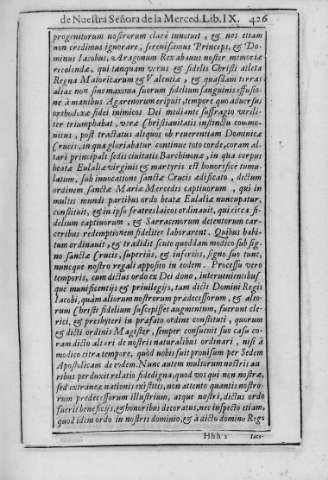 de Nuestra Señora de la Merced. Lib. IX. 426
progenitorum nostrorum clarè innotuit, & nos etiam
non credimus ignorare, serenissimus Princeps, & Do-
minus Iacobus, Aragonum Rex abauus noster memoriæ
recolendæ, qui tanquam verus & fidelis Christi atleta
Regna Maioricarum & Valentiæ, & quasdam terras
alias non sine maxima suorum fidelium sanguinis effusio-
ne à manibus Agarenorum eripuit, tempore quo aduersus
orthodoxæ fidei inimicos Dei mediante suffragio virili-
ter triumphabat, veræ Christianitatis instinctu commo-
nitus, post tractatus aliquos ob reuerentiam Dominicæ
Crucis, in qua gloriabatur continuè toto corde, coram al-
tari principali sedis ciuitatis Barchinonæ, in qua corpus
beatæ Eulaliæ virginis & martyris est honorifice tumu-
latum, sub inuocatione sanctæ Crucis ædificato, dictum
ordinem sanctæ Mariæ Mercedis captiuorum, qui in
multis mundi partibus ordo beatæ Eulaliæ nuncupatur,
constituit, & in ipso fratres laicos ordinauit, qui circa fi-
delium captiuorum, & Sarracenorum detentorum car-
ceribus redemptionem fideliter laborarent. Quibus habi-
tum ordinauit, & tradidit scuto quoddam modico sub sig-
no sanctæ Crucis, superius, & inferius, signo suo tunc,
nuncque nostro regali apposito in eodem. Processu vero
temporis, cum dictus ordo ex Dei dono, interuenientibus-
que munificentijs & priuilegijs, tam dicti Domini Regis
Iacobi, quàm aliorum nostrorum prædecessorum, & alio-
rum Christi fidelium suscepisset augmentum, fuerunt cle-
rici, & presbyteri in præfato ordine constituti, quorum
& dicti ordinis Magister, semper consueuit suo casu co-
ram dicto altari de nostris naturalibus ordinari, nisi à
modico citra tempore, quod nobis fuit prouisum per Sedem
Apostolicam de eodem. Nunc autem multorum nostris au-
ribus perduxit relatio fidedigna, quod vos qui non nostræ,
sed extraneæ nationis existitis, non attento quantis nostro-
rum predecessorum illustrium, atque nostri, dictus ordo
fuerit beneficijs, & honoribus decoratus, nec inspecto etiam,
quod idem ordo in nostris dominio, & à dicto domino Rege
Hhh 2 Iaco-